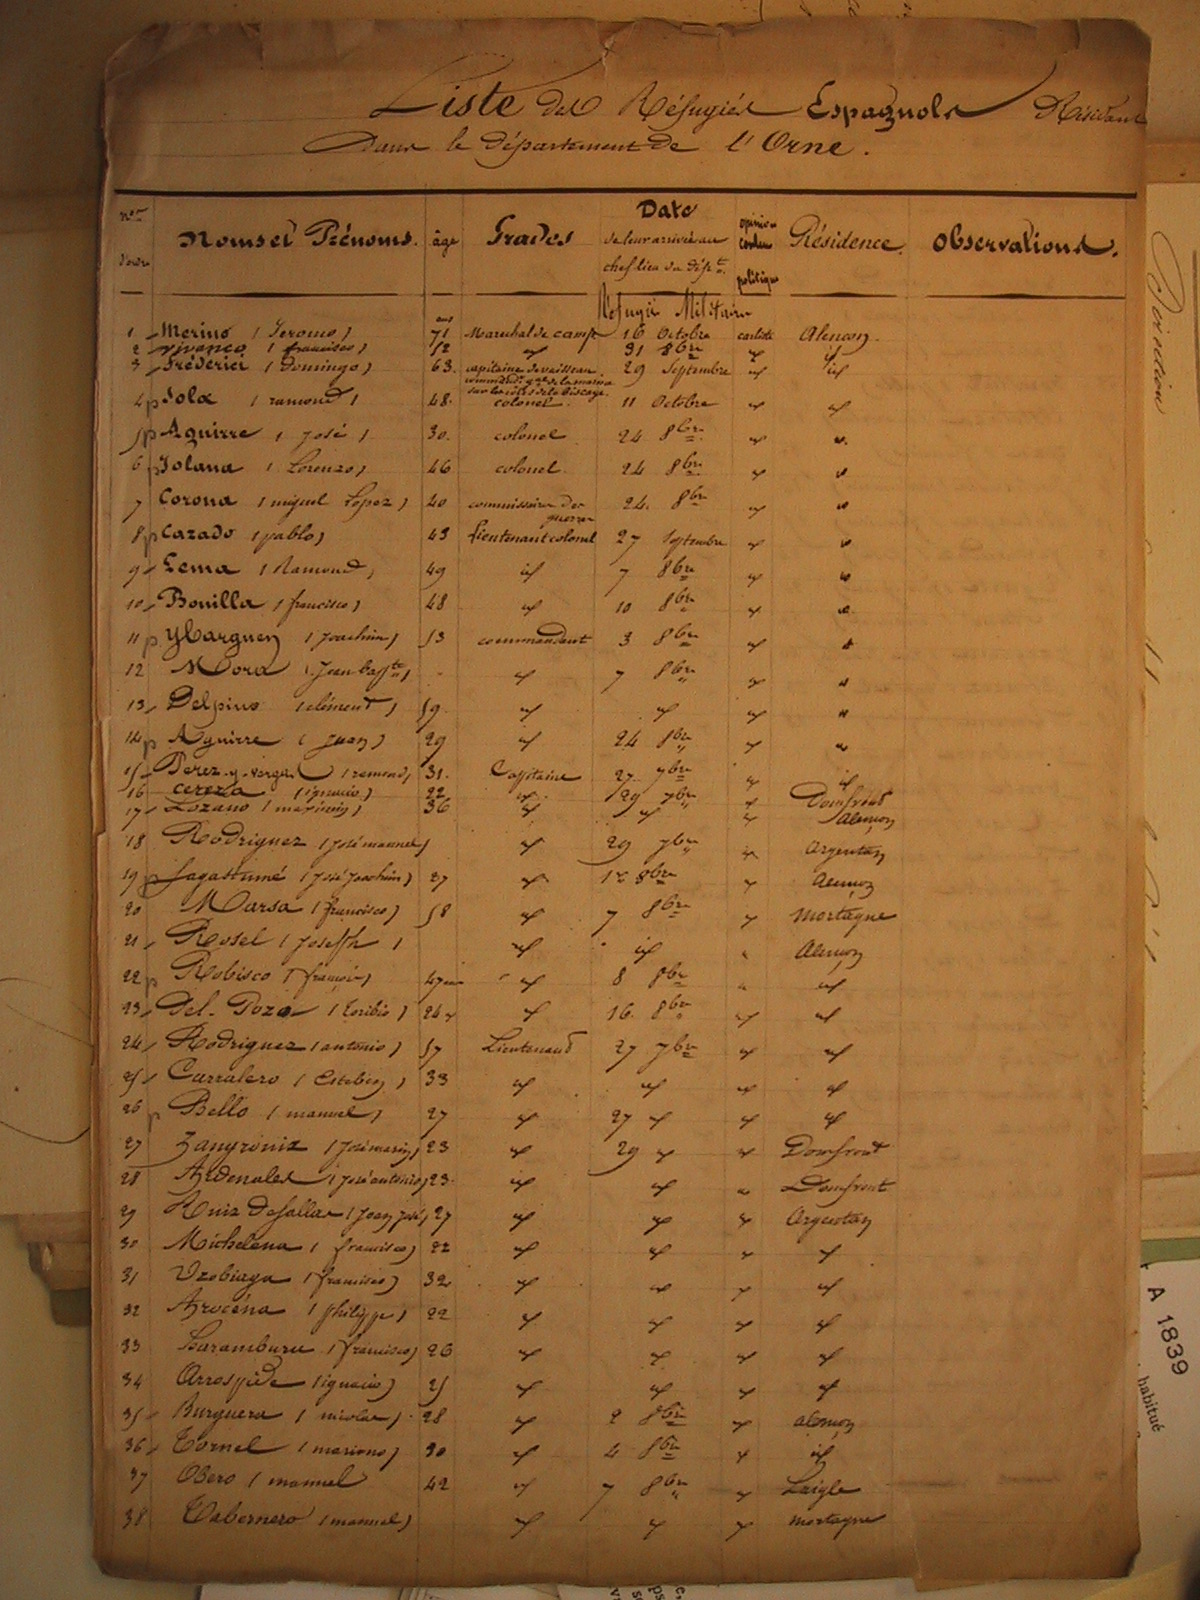 Liste des Réfugiés Espagnols Résidant
Dans le département de l'Orne.
Nos d'ordre Noms et Prénoms. âge Grades Date de leur arrivée au chef lieu du dépt. opinion politique Résidence. Observations.
Réfugié Militaire
1 Merino (Geromo) 71 ans Maréchal de camp 16 Octobre carliste Alençon
2 vivanco (francisco) 52 id 31 8bre id id
3 Fréderici (Domingo) 63. capitaine de vaisseau commandt gal de la marine sur les côtes de la Biscaye. 29 Septembre id id
4 p Sola (ramond) 48. colonel. 11 Octobre id id
5 p Aguirre (José) 30. colonel 24 8bre id id
6 p Solana (Lorenzo) 46 colonel 24 8bre id id
7 Corona (miguel Lopez) 40 commissaire des guerres 24. 8bre id id
8 p Cazado (pablo) 43 Lieutenant colonel 27 Septembre id id
9 Lema (Ramond) 49 id 7 8bre id id
10 Bonilla (francisco) 48 id 10 8bre id id
11 p Ybarguen (Joachim) 53 commandant 3 8bre id id
12 Mora (Jean Bapte) id 7 8bre id id
13 Delpino (clément) 59 id id id id
14 p Aguirre (Juan) 29 id 24 8bre id id
15 Perez-y-vargas (ramond) 31. Capitaine 27 7bre id id
16 cereza (ignacio) 22 id 29 7bre id Domfront
17 Lozano (maximin) 36 id id id Alençon
18 Rodriguez (José manuel) id 29 7bre id Argentan
19 p Sagastumé (José Joachim) 27 id 12 8bre id Alençon
20 Marsa (francisco) 58 id 7 8bre id mortagne
21 Rosel (Joseph) id id id Alençon
22 p Robisco (françois) 47 ans id 8 8bre id id
23 Del-Pozo (Toribio) 24 id 16. 8bre id id
24 Rodriguez (antonio) 57 Lieutenand 27 7bre id id
25 Carralero (Esteben) 33 id id id id
26 p Bello (manuel) 27 id 27 id id id
27 Zanyroniz (José maria) 23 id 29 id id Domfront
28 Ardenales (José antonio) 23. id id id Domfront
29 Ruiz Desallas (Joan José) 27 id id id Argentan
30 Michelena (francisco) 22 id id id id
31 Uzobiaga (francisco) 32 id id id id
32 Arocéna (philippe) 22 id id id id
33 Laramburu (francisco) 26 id id id id
34 Arrospide (ignacio) 25 id id id id
35 Burguera (nicolas) 28 id 2 8bre id alençon
36 Tornel (mariano) 30 id 4 8bre id id
37 Obero (manuel 42 id 7 8bre id Laigle
38 Tabernero (manuel) id id id mortagne
A 1839
habitué